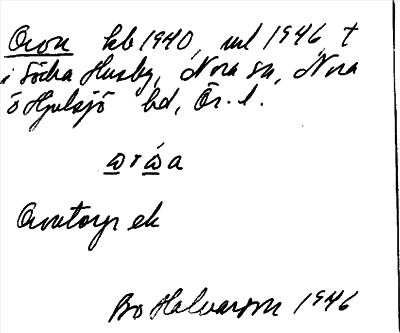 Oron kb 1940, ml 1946, t
i Södra Husby, Nora sn, Nora
o Hjulsjö bd, Ör. l.
Orontorp ek
Bo Halvarson 1946